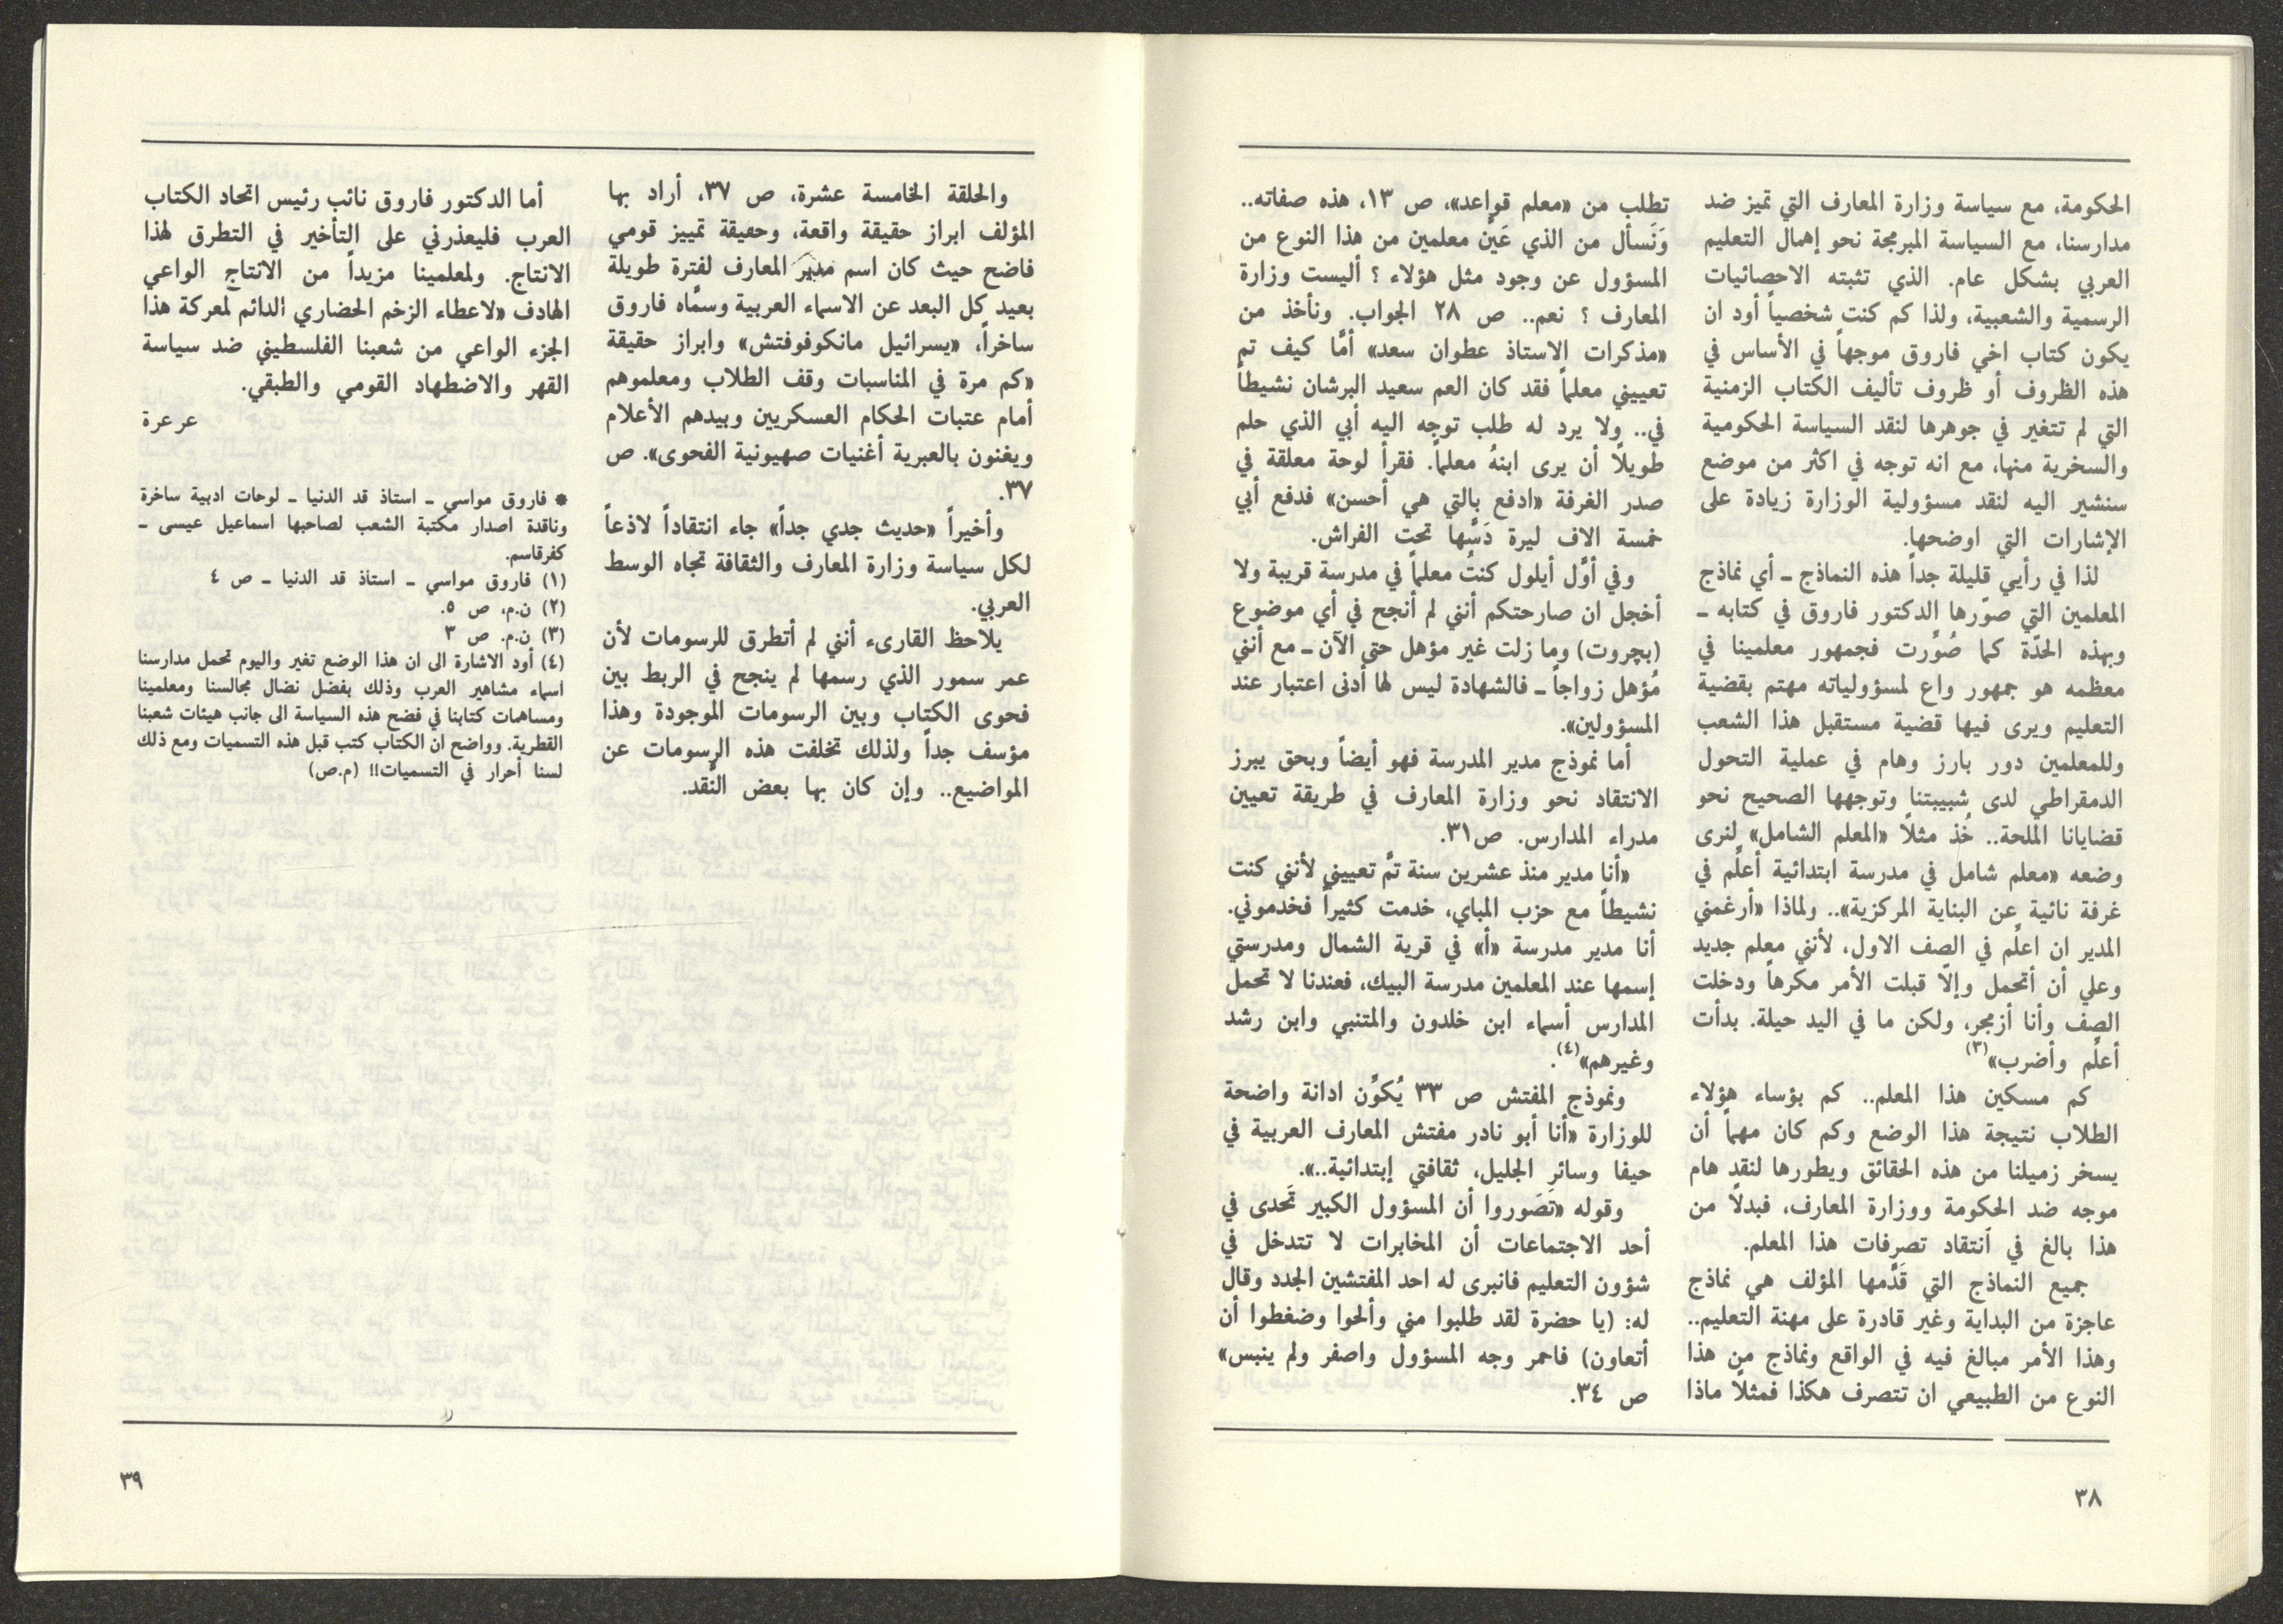 الحكومة، مع سياسة وزارة المعارف التي تميز ضد
مدارسنا، مع السياسة المبرمجة نحو إهمال التعليم
العربي بشكل عام. الذي تثبته الاحصائيات
الرسمية والشعبية، ولذا كم كنت شخصياً أود ان
يكون كتاب اخي فاروق موجهاً في الأساس في
هذه الظروف أو ظروف تأليف الكتاب الزمنية
التي لم تتغير في جوهرها لنقد السياسة الحكومية
والسخرية منها، مع انه توجه في اكثر من موضع
سنشير اليه لنقد مسؤولية الوزارة زيادة على
الإشارات التي اوضحها.
لذا في رأيي قليلة جداً هذه النماذج ـ أي نماذج
المعلمين التي صوّرها الدكتور فاروق في كتابه ـ
وبهذه الحدّة كما صُوِّرت فجمهور معلمينا في
معظمه هو جمهور واع لمسؤولياته مهتم بقضية
التعليم ويرى فيها قضية مستقبل هذا الشعب
وللمعلمين دور بارز وهام في عملية التحول
الدمقراطي لدى شبيبتنا وتوجهها الصحيح نحو
قضايانا الملحة.. خُذ مثلاً «المعلم الشامل» لنرى
وضعه «معلم شامل في مدرسة ابتدائية أعلّم في
غرفة نائية عن البناية المركزية».. ولماذا «أرغمني
المدير ان اعلّم في الصف الاول، لأنني معلم جديد
وعلي أن أتحمل وإلّا قبلت الأمر مكرهاً ودخلت
الصف وأنا أزمجر، ولكن ما في اليد حيلة. بدأت
أعلّم وأضرب»(٣)
كم مسكين هذا المعلم.. كم بؤساء هؤلاء
الطلاب نتيجة هذا الوضع وكم كان مهماً أن
يسخر زميلنا من هذه الحقائق ويطورها لنقد هام
موجه ضد الحكومة ووزارة المعارف، فبدلاً من
هذا بالغ في اَنتقاد تصرفات هذا المعلم.
جميع النماذج التي قَدَّمها المؤلف هي نماذج
عاجزة من البداية وغير قادرة على مهنة التعليم..
وهذا الأمر مبالغ فيه في الواقع ونماذج من هذا
النوع من الطبيعي ان تتصرف هكذا فمثلاً ماذا
تطلب من «معلم قواعد»، ص ١٣، هذه صفاته..
وَنَسأل من الذي عَيَّن معلمين من هذا النوع من
المسؤول عن وجود مثل هؤلاء ؟ أليست وزارة
المعارف ؟ نعم.. ص ٢٨ الجواب. ونأخذ من
«مذكرات الاستاذ عطوان سعد» أمَّا كيف تم
تعييني معلماً فقد كان العم سعيد البرشان نشيطاً
في.. ولا يرد له طلب توجه اليه أبي الذي حلم
طويلاً أن يرى ابنهُ معلماً. فقرأ لوحة معلقة في
صدر الغرفة «ادفع بالتي هي أحسن» فدفع أبي
خمسة الاف ليرة دَسَّها تحت الفراش.
وفي أوَّل أيلول كنتُ معلماً في مدرسة قريبة ولا
أخجل ان صارحتكم أنني لم أنجح في أي موضوع
(بچروت) وما زلت غير مؤهل حتى الآن ـ مع أنني
مُؤهل زواجاً ـ فالشهادة ليس لها أدنى اعتبار عند
المسؤولين».
أما نموذج مدير المدرسة فهو أيضاً وبحق يبرز
الانتقاد نحو وزارة المعارف في طريقة تعيين
مدراء المدارس. ص٣١.
«أنا مدير منذ عشرين سنة تمَّ تعييني لأنني كنت
نشيطاً مع حزب المباي، خدمت كثيراً فخدموني.
أنا مدير مدرسة «أ» في قرية الشمال ومدرستي
إسمها عند المعلمين مدرسة البيك، فعندنا لا تحمل
المدارس أسماء ابن خلدون والمتنبي وابن رشد
وغيرهم»(٤).
ونموذج المفتش ص ٣٣ يُكوِّن ادانة واضحة
للوزارة «أنا أبو نادر مفتش المعارف العربية في
حيفا وسائر الجليل، ثقافتي إبتدائية..».
وقوله «تَصَوروا أن المسؤول الكبير تَحدى في
أحد الاجتماعات أن المخابرات لا تتدخل في
شؤون التعليم فانبرى له احد المفتشين الجدد وقال
له: (يا حضرة لقد طلبوا مني وألحوا وضغطوا أن
أتعاون) فاحمر وجه المسؤول واصفر ولم ينبس»
ص ٣٤.
٣٨
والحلقة الخامسة عشرة، ص ٣٧، أراد بها
المؤلف ابراز حقيقة واقعة، وحقيقة تمييز قومي
فاضح حيث كان اسم مدير المعارف لفترة طويلة
بعيد كل البعد عن الاسماء العربية وسمَّاه فاروق
ساخراً، «يسرائيل مانكوفوفتش» وابراز حقيقة
«كم مرة في المناسبات وقف الطلاب ومعلموهم
أمام عتبات الحكام العسكريين وبيدهم الأعلام
ويغنون بالعبرية أغنيات صهيونية الفحوى». ص
٣٧.
وأخيراً «حديث جدي جداً» جاء انتقاداً لاذعاً
لكل سياسة وزارة المعارف والثقافة تجاه الوسط
العربي.
يلاحظ القارىء أنني لم أتطرق للرسومات لأن
عمر سمور الذي رسمها لم ينجح في الربط بين
فحوى الكتاب وبين الرسومات الموجودة وهذا
مؤسف جداً ولذلك تخلفت هذه الرسومات عن
المواضيع.. وإن كان بها بعض النَّقد.
أما الدكتور فاروق نائب رئيس اتحاد الكتاب
العرب فليعذرني على التأخير في التطرق لهذا
الانتاج. ولمعلمينا مزيداً من الانتاج الواعي
الهادف «لاعطاء الزخم الحضاري الدائم لمعركة هذا
الجزء الواعي من شعبنا الفلسطيني ضد سياسة
القهر والاضطهاد القومي والطبقي.
عرعرة
* فاروق مواسي ـ استاذ قد الدنيا ـ لوحات ادبية ساخرة
وناقدة اصدار مكتبة الشعب لصاحبها اسماعيل عيسى ـ
كفرقاسم.
(١) فاروق مواسي ـ استاذ قد الدنيا ـ ص ٤
(٢) ن.م، ص ٥.
(٣) ن.م. ص ٣
(٤) أود الاشارة الى ان هذا الوضع تغير واليوم تحمل مدارسنا
اسماء مشاهير العرب وذلك بفضل نضال مجالسنا ومعلمينا
ومساهمات كتابنا في فضح هذه السياسة الى جانب هيئات شعبنا
القطرية. وواضح ان الكتاب كتب قبل هذه التسميات ومع ذلك
لسنا أحرار في التسميات!! (م.ص)
٣٩